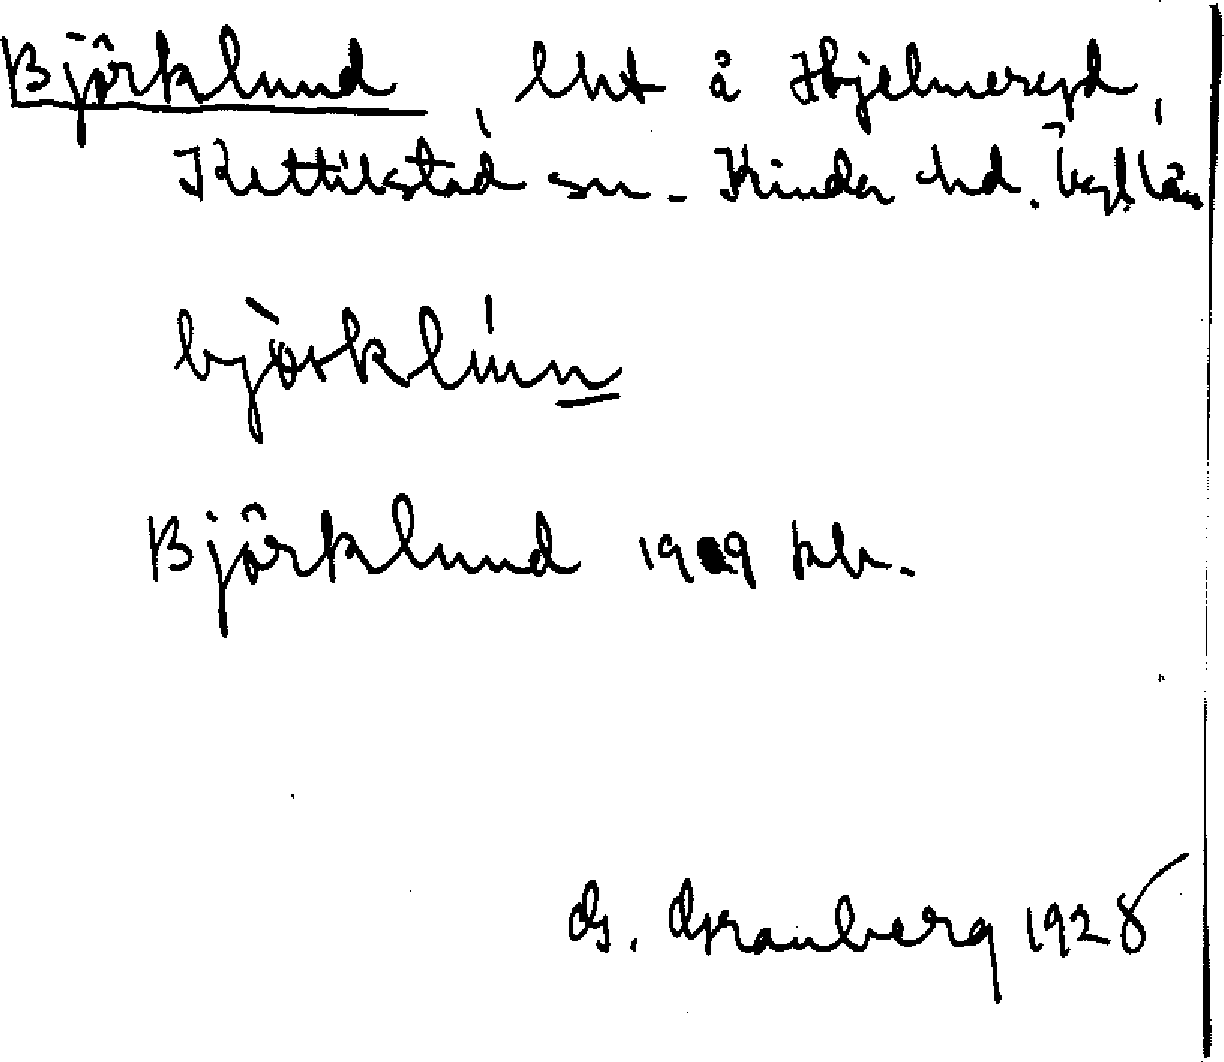 Björklund, lht å Hjelmeryd,
Kettilstad sn. Kinda hd. Ögl. län
björklúnn
Björklund 1909 kb.
G. Granberg 1928